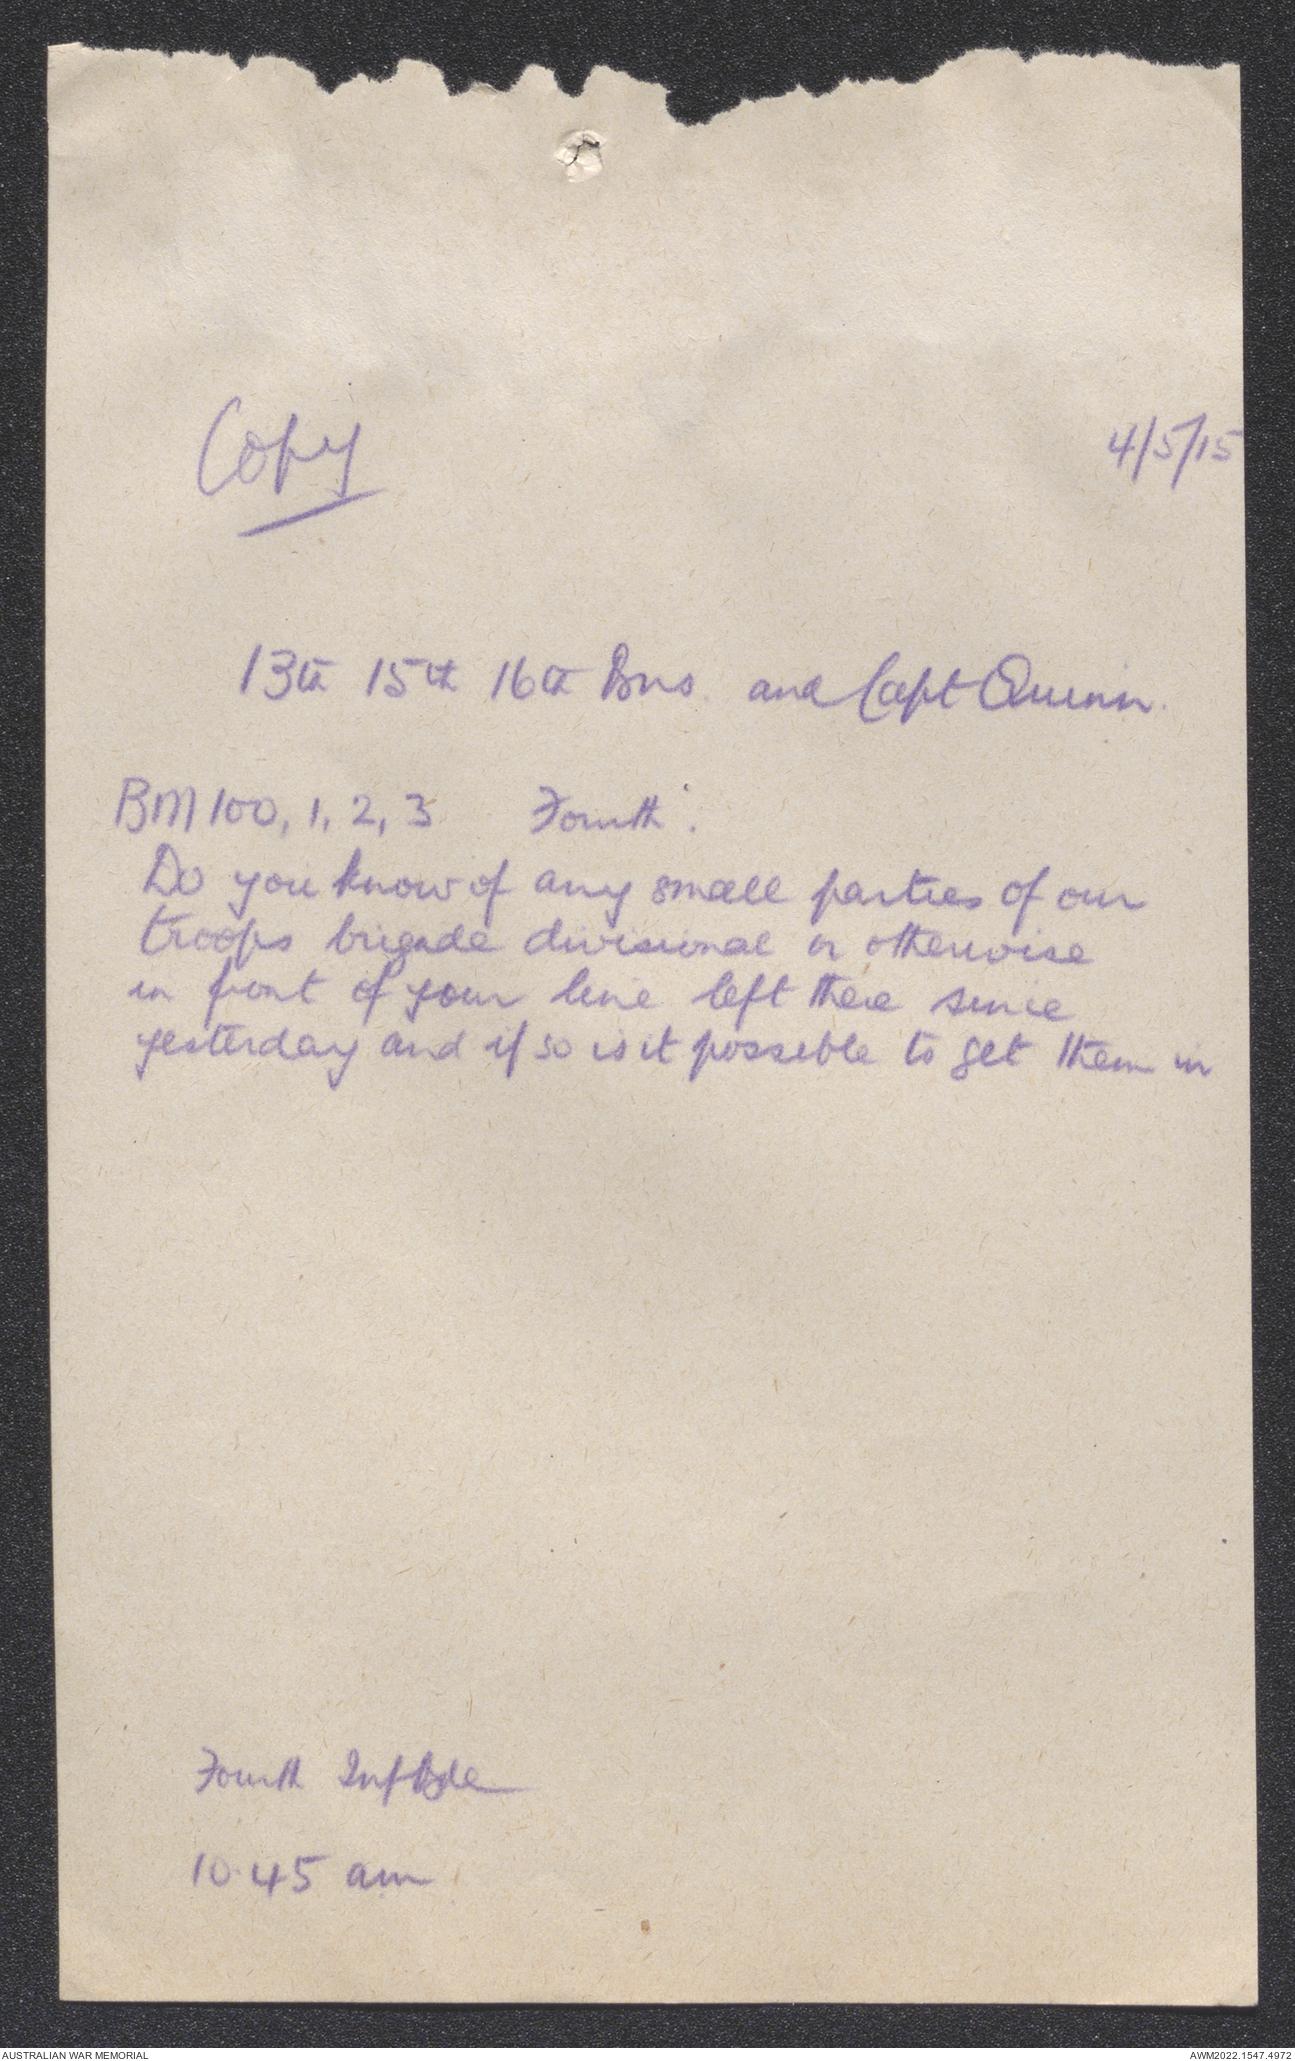 Copy
4/5/15
13th 15th 16th Bns. and Capt Quinn.
BM100, 1, 2, 3 Fourth.
Do you know of any small parties of our
troops brigade divisional or otherwise
in front of your line left there since
yesterday and if so is it possible to get them in
Fourth Inf Bde
10.45 am
AUSTRALIAN WAR MEMORIAL
AWM2022.1547.4972